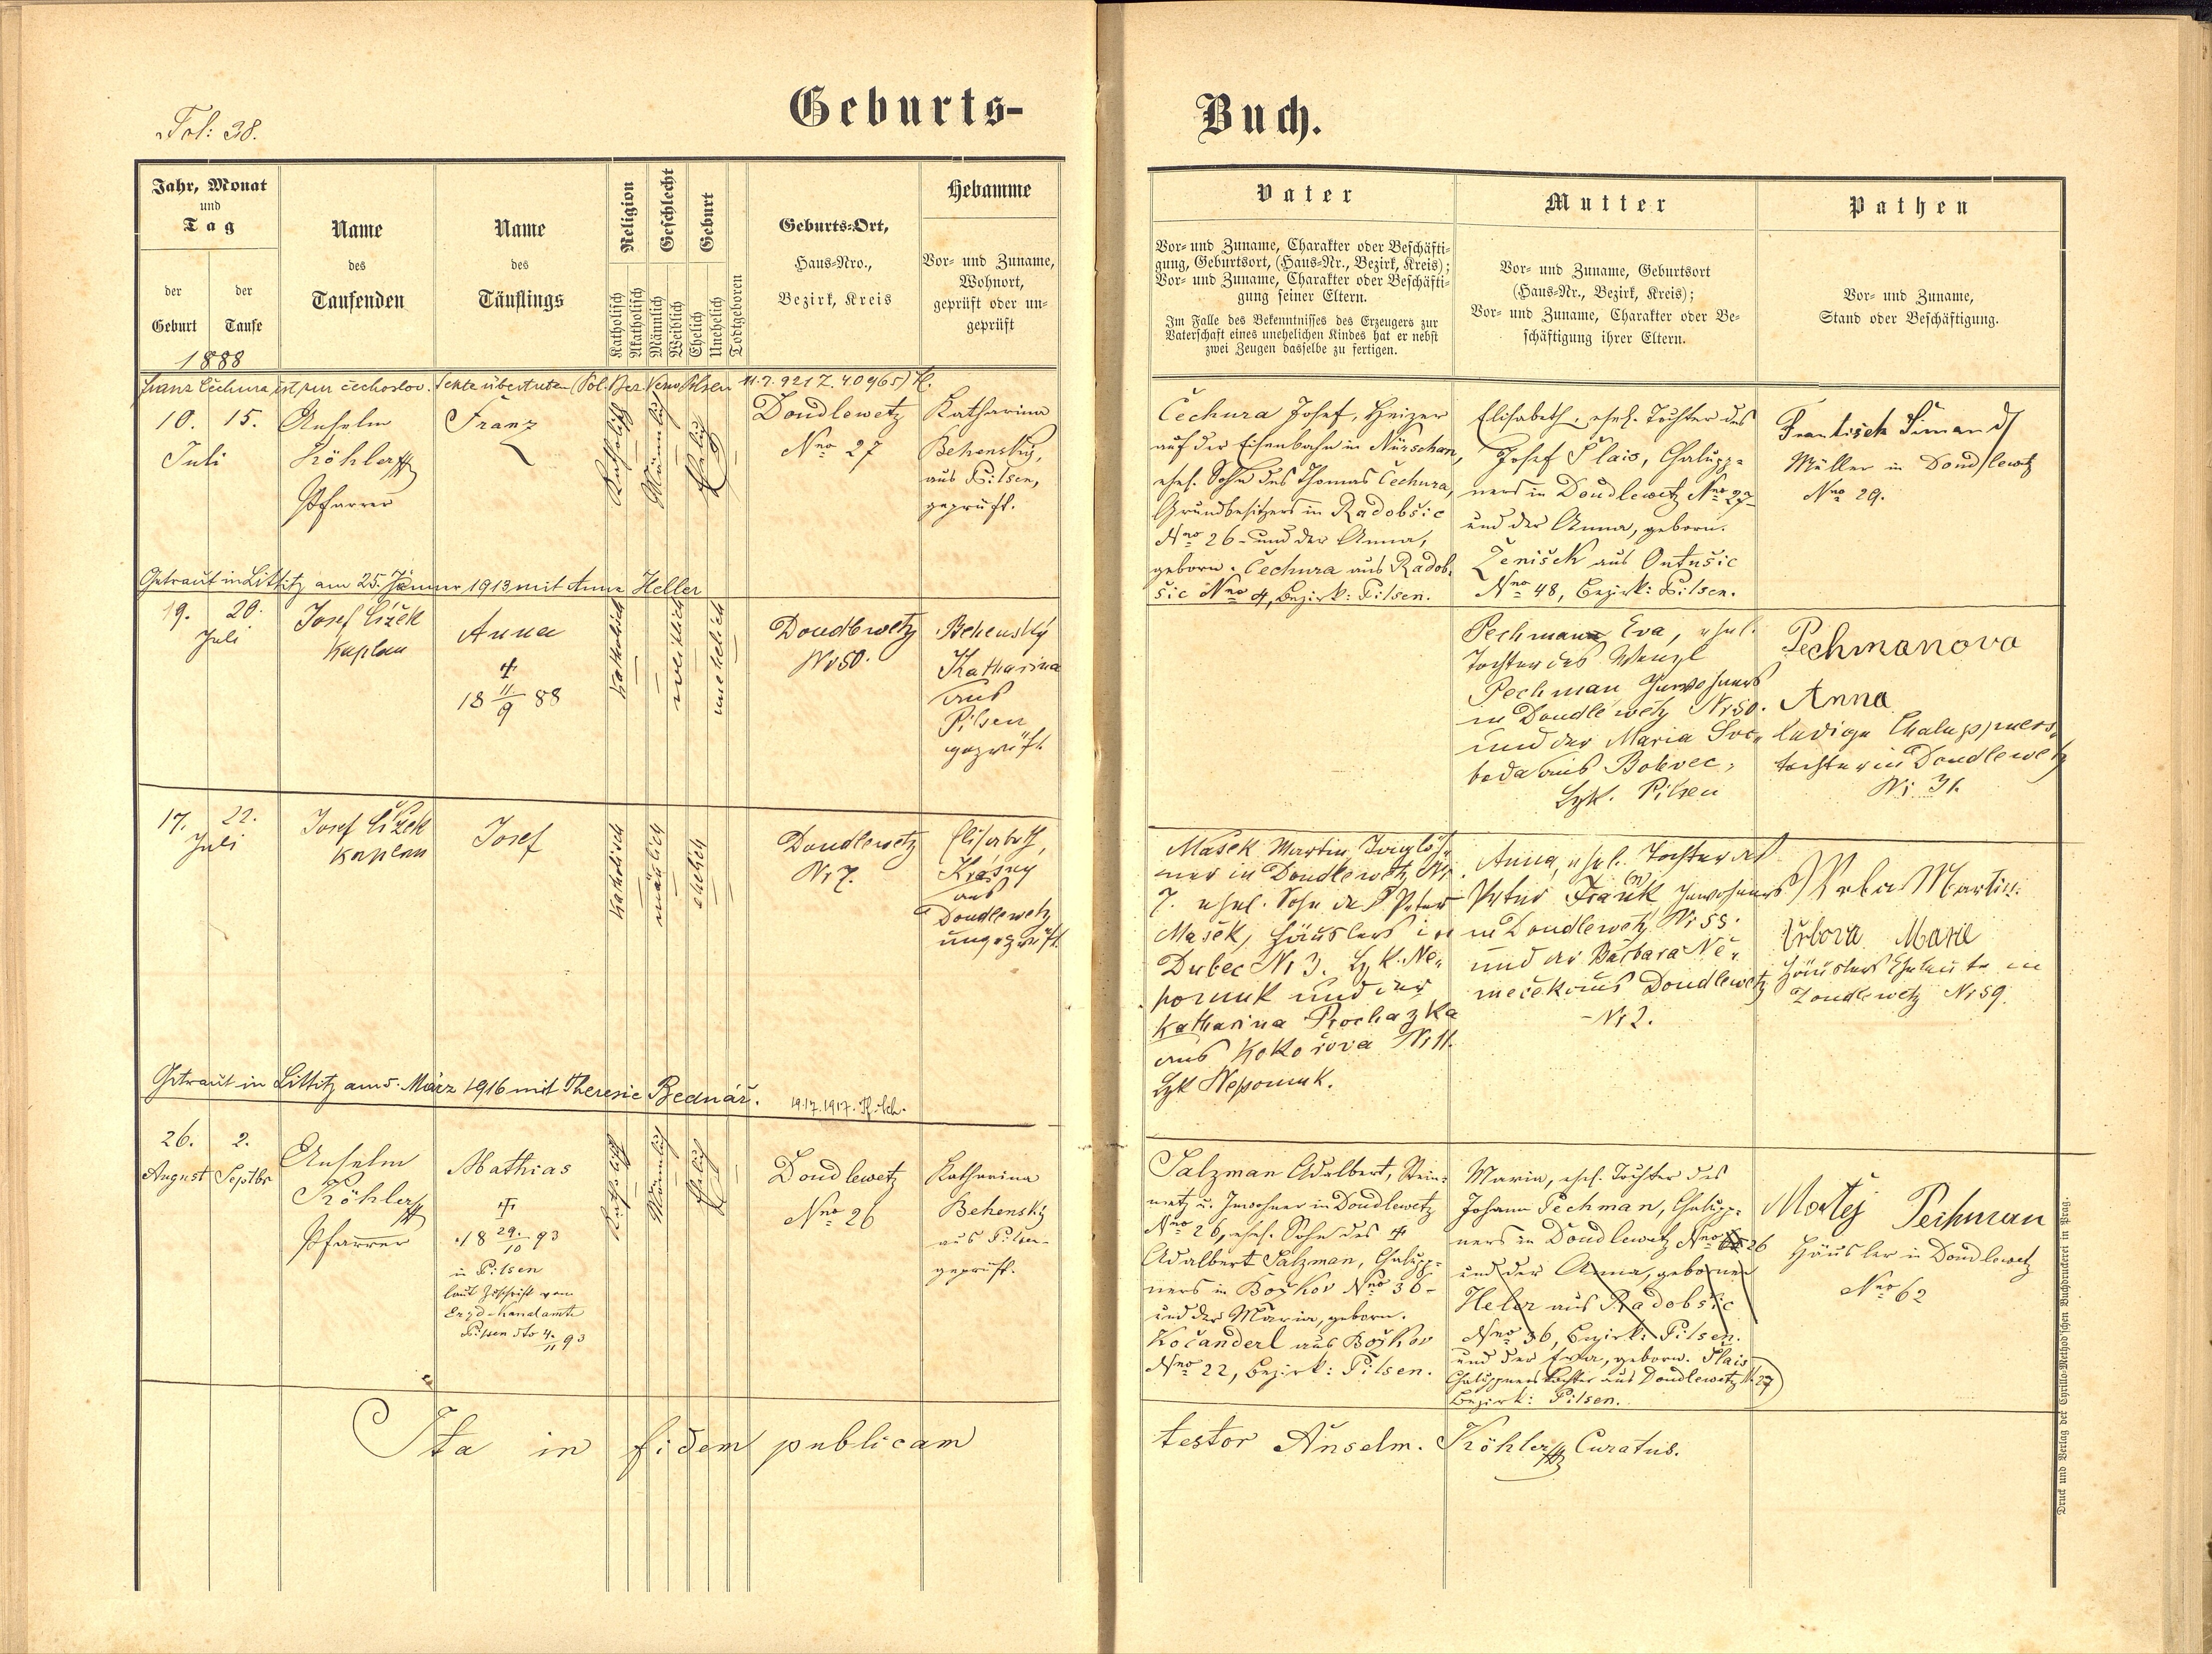 Fol: 38.
Geburts-
Buch.
Jahr, Monat
und
Tag
der
Geburt
der
Taufe
1888
Name
des
Taufenden
Name
des
Täuflings
Religion
Katholisch
Akatholisch
Geschlecht
Männlich
Weiblich
Geburt
Ehelich
Unehelich
Todtgeboren
Geburts-Ort,
Haus-Nro.,
Bezirk, Kreis
Hebamme
Vor- und Zuname,
Wohnort,
geprüft oder un-
geprüft
Vater
Vor- und Zuname, Charakter oder Beschäfti-
gung, Geburtsort, (Haus-Nr., Bezirk, Kreis);
Vor- und Zuname, Charakter oder Beschäfti-
gung seiner Eltern.
Im Falle des Bekenntnisses des Erzeugers zur
Vaterschaft eines unehelichen Kindes hat er nebst
zwei Zeugen dasselbe zu fertigen.
Mutter
Vor- und Zuname, Geburtsort
(Haus-Nr., Bezirk, Kreis);
Vor- und Zuname, Charakter oder Be-
schäftigung ihrer Eltern.
Pathen
Vor- und Zuname,
Stand oder Beschäftigung.
Franz Čechura ist zur čechoslov. Sekte übertreten (Pol. Bez. Pilsen 11.7.921 Z. 40965)
10. 15.
Juli
Anselm
Köhler
Pfarrer
Franz
Katholisch
Männlich
Ehelich
Doudlewetz
Nro 27
Katharina
Behensky,
aus Pilsen,
geprüft.
Čechura Josef, Heizer
auf der Eisenbahn in Nürschan,
ehel. Sohn des Thomas Čechura,
Grundbesitzers in Radobšic
Nro 26 und der Anna,
geborn. Čechura aus Radob-
šic Nro 4, Bezirk: Pilsen.
Elisabeth, ehel. Tochter des
Josef Plais, Chalupp-
ners in Doudlewetz Nro 27
und der Anna, geborn.
Ženišek aus Ontušic
Nro 48, Bezirk: Pilsen.
Frantisek Šimandl
Müller in Doudlewetz
Nro 29.
Getraut in Littitz am 25. Jänner 1913 mit Anna Heller
19. 20.
Juli
Josef Čížek
Kaplan
Anna
†
18 11/9 88
katholisch
weiblich
unehelich
Doudlewetz
Nr 50.
Behenský
Katharina
aus
Pilsen
geprüft
Pechmann Eva, ehel.
Tochter des Wenzl
Pechman Inwohners
in Doudlewetz Nr 50.
und der Maria Svo-
boda aus Bolevec,
Bzk. Pilsen
Pechmanova
Anna
ledige Chaluppners-
tochter in Doudlewetz
Nr. 31.
17. 22.
Juli
Josef Čížek
Kaplan
Josef
katholisch
männlich
ehelich
Doudlewetz
Nr 7.
Elisabeth,
Krásný
aus
Doudlewetz
ungeprüft
Mašek Martin, Taglöh-
ner in Doudlewetz Nr.
7. ehel. Sohn des Peter
Mašek, Häuslers in
Dubec Nr 3. Bzk. Ne-
pomuk und der
Katharina Prochazka
aus Kokořova Nr 11.
Bzk Nepomuk.
Anna, ehel. Tochter des
Peter Frank Inwohners
in Doudlewetz Nr 55.
und der Barbara Ně-
meček aus Doudlewetz
Nr 2.
Vrba Martin
Vrbova Marie
Häuslers Eheleute in
Doudlewetz Nr 59.
Getraut in Littitz am 5. März 1916 mit Theresie Bednář.
26. 2.
August Septbr
Anselm
Köhler
Pfarrer
Mathias
†
18 29./10 93
in Pilsen
laut Zuschrift vom
Erzd-Kanalamte
Pilsen dto 4./11 93
Katholisch
Männlich
Ehelich
Doudlewetz
Nro 26
Katharina
Behensky
aus Pilsen
geprüft.
Salzman Adalbert, Stein-
metz u. Inwohner in Doudlewetz
Nro 26, ehel. Sohn des †
Adalbert Salzman, Chalupp-
ners in Božkov Nro 36
und der Maria, geborn.
Kočanderl aus Božkov
Nro 22, Bezirk: Pilsen.
Maria, ehel. Tochter des
Johann Pechman, Chalupp-
ners in Doudlewetz Nro 26
und der Anna, gebornen
Heler aus Radobšic
Nro 36, Bezirk: Pilsen.
und der Eva, geborn. Plais
Chaluppnerstochter aus Doudlewetz N. 27
Bezirk: Pilsen.
Matěj Pechman
Häusler in Doudlewetz
Nro 62
Ita in fidem publicam
testor Anselm. Köhler Curatus.
Druck und Verlag der Cyrillo-Method'schen Buchdruckerei in Prag.